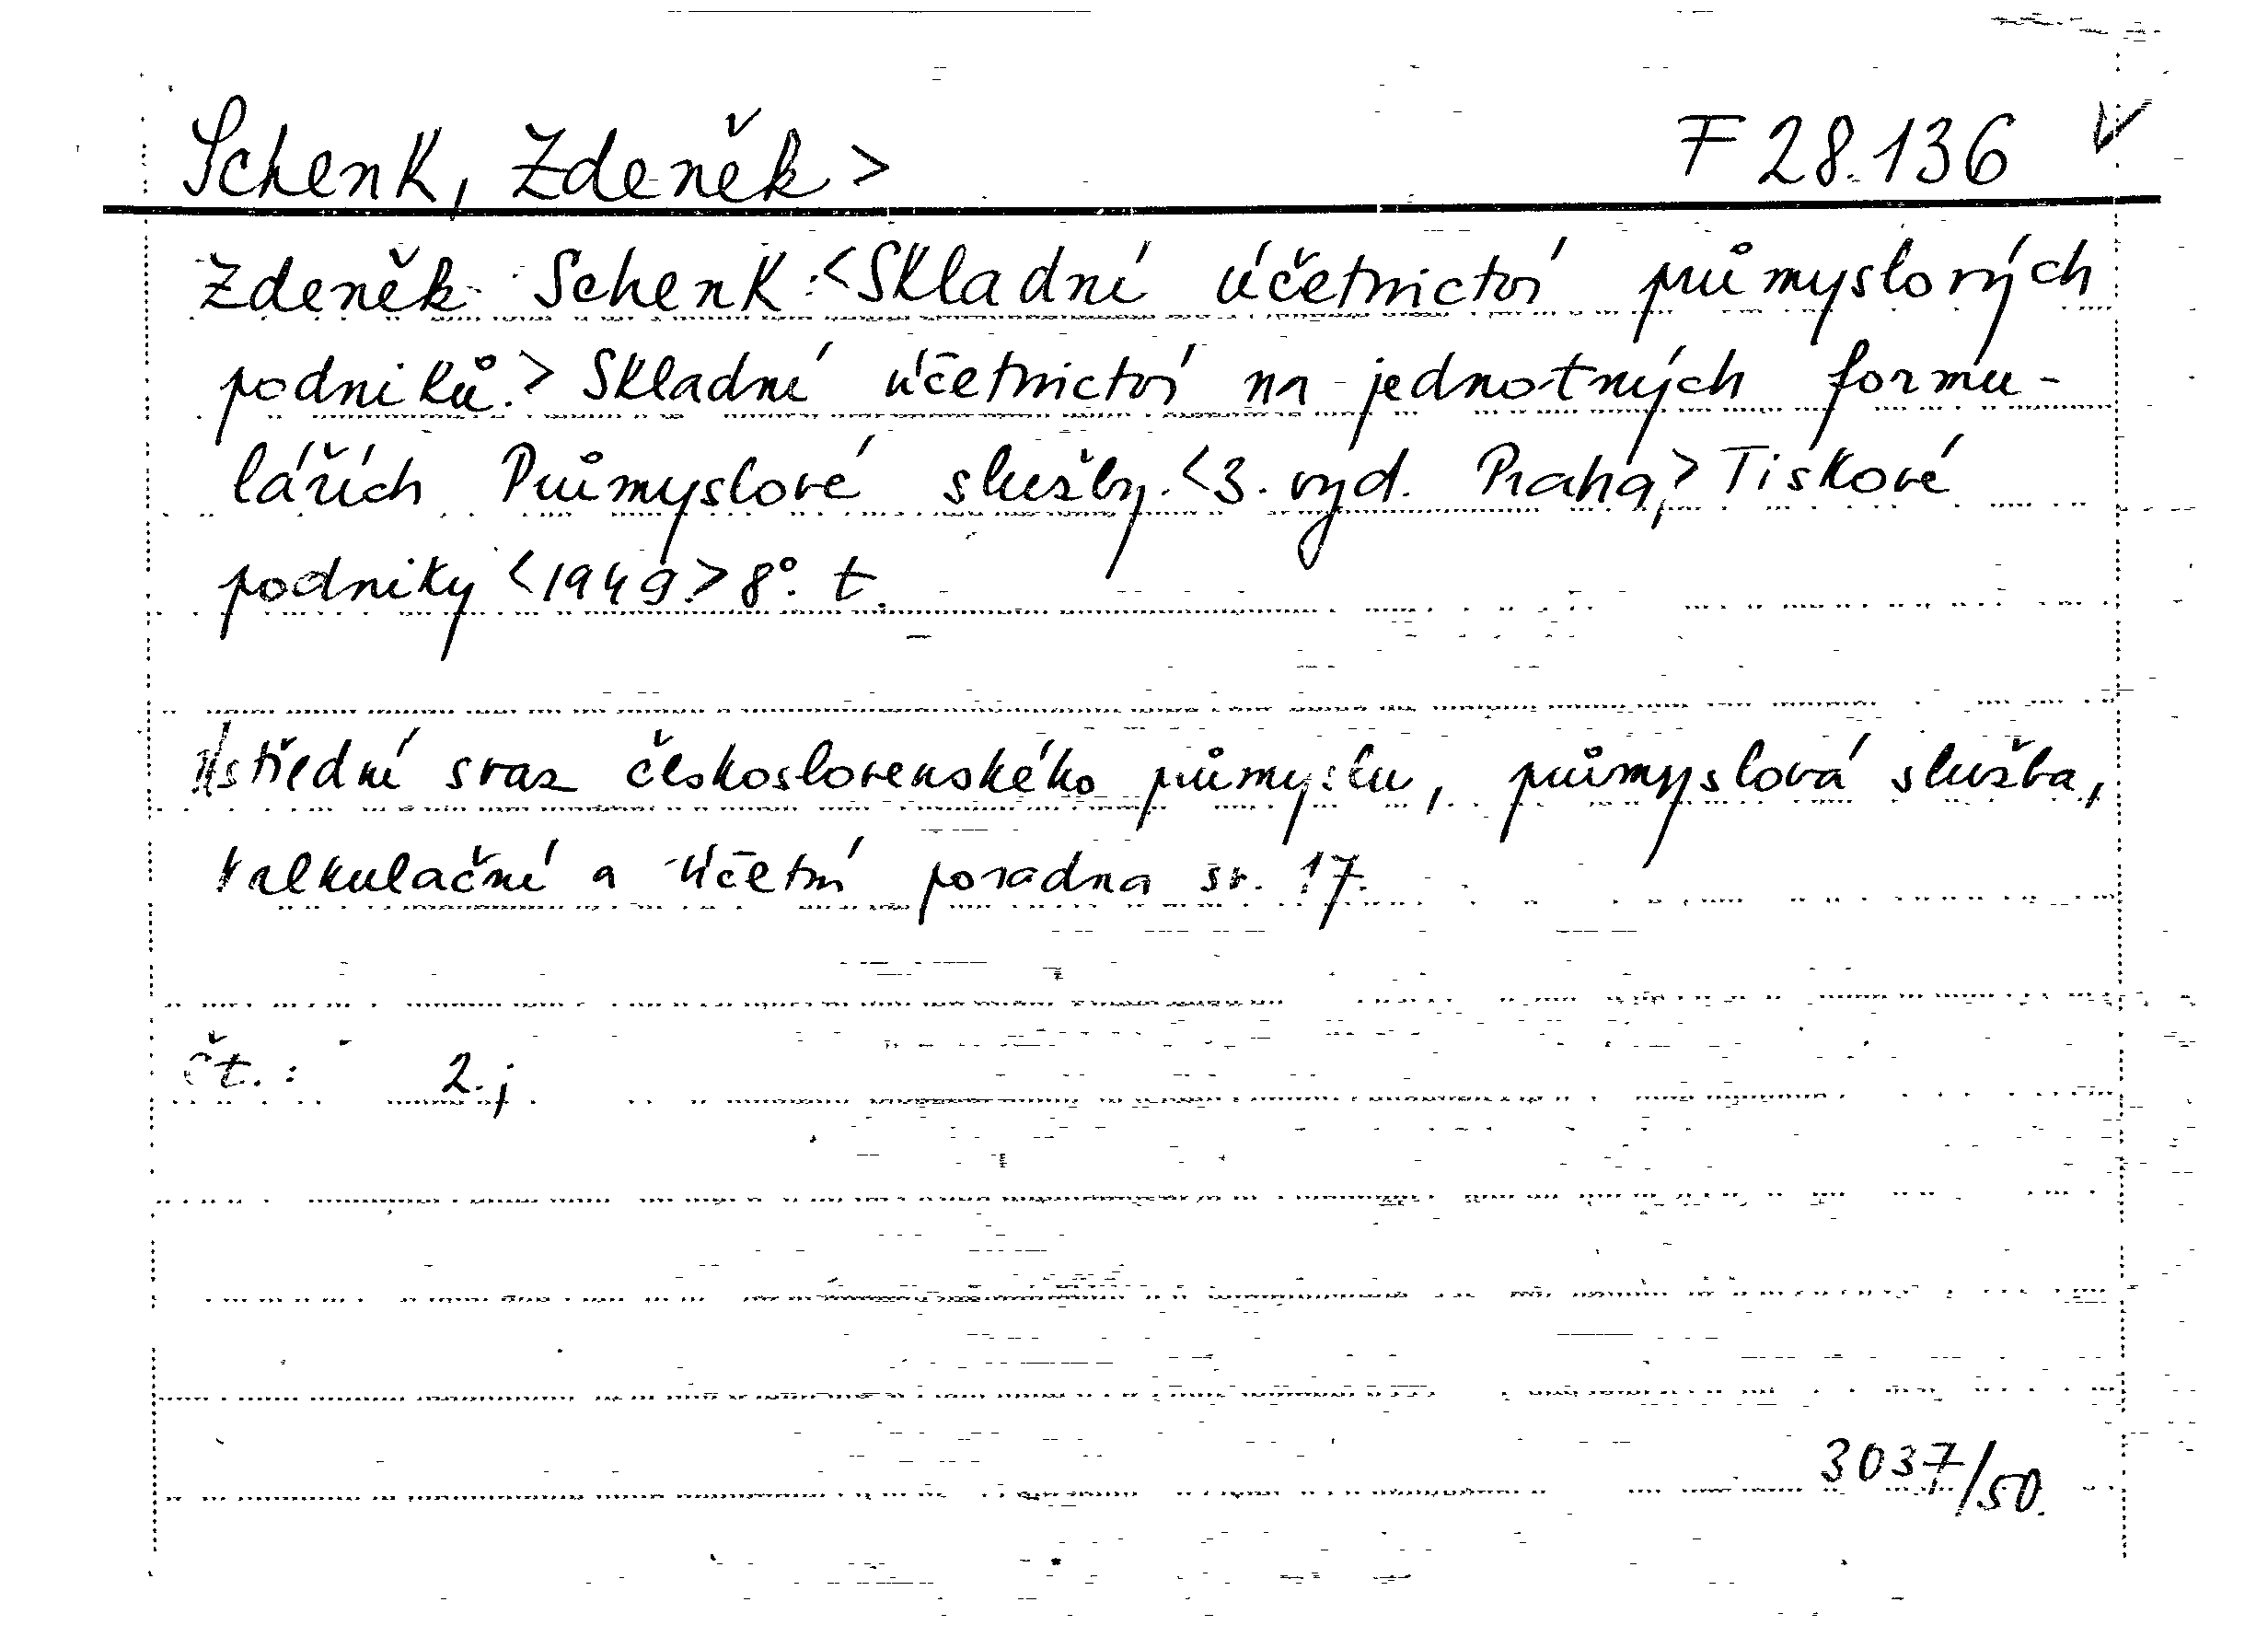 Schenk, Zdeněk > F 28.136 ✓
Zdeněk Schenk: <Skladní účetnictví průmyslových
podniků.> Skladní účetnictví na jednotných formu-
lářích Průmyslové služby. <3. vyd. Praha,> Tiskové
podniky <1949.> 8°. t.
Ústřední svaz československého průmyslu, průmyslová služba,
kalkulační a účetní poradna sv. 17.
čt.: 2.j
3037/50.